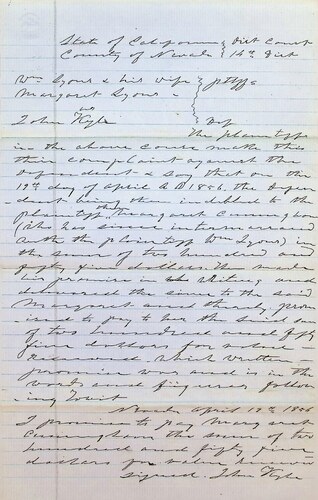 State of California } Dist Court
County of Nevada } 14th Dist
Wm Lyons & his wife } pltffs
Margaret Lyons
vs
John Kyle } Def
The plaintiff
in the above cause make this
their complaint against the
defendant & say that on the
19th day of April AD 1856, the defen
dant being then indebted to the
plaintiff, Margaret Cunningham
(who has since intermarried
with the plaintiff Wm Lyons) in
the sum of two hundred and
fifty five dollars. He made
his promise in writing and
delivered the same to the said
Margaret and thereby prom
ised to pay to her the said sum
of two hundred and fifty
five dollars for value
Received which written
promise was and is in the
words and figures follow
ing Towit
Nevada April 19th 1856
I promise to pay Margaret
Cunningham the sum of two
hundred and fifty five
dollars for value received
signed. John Kyle